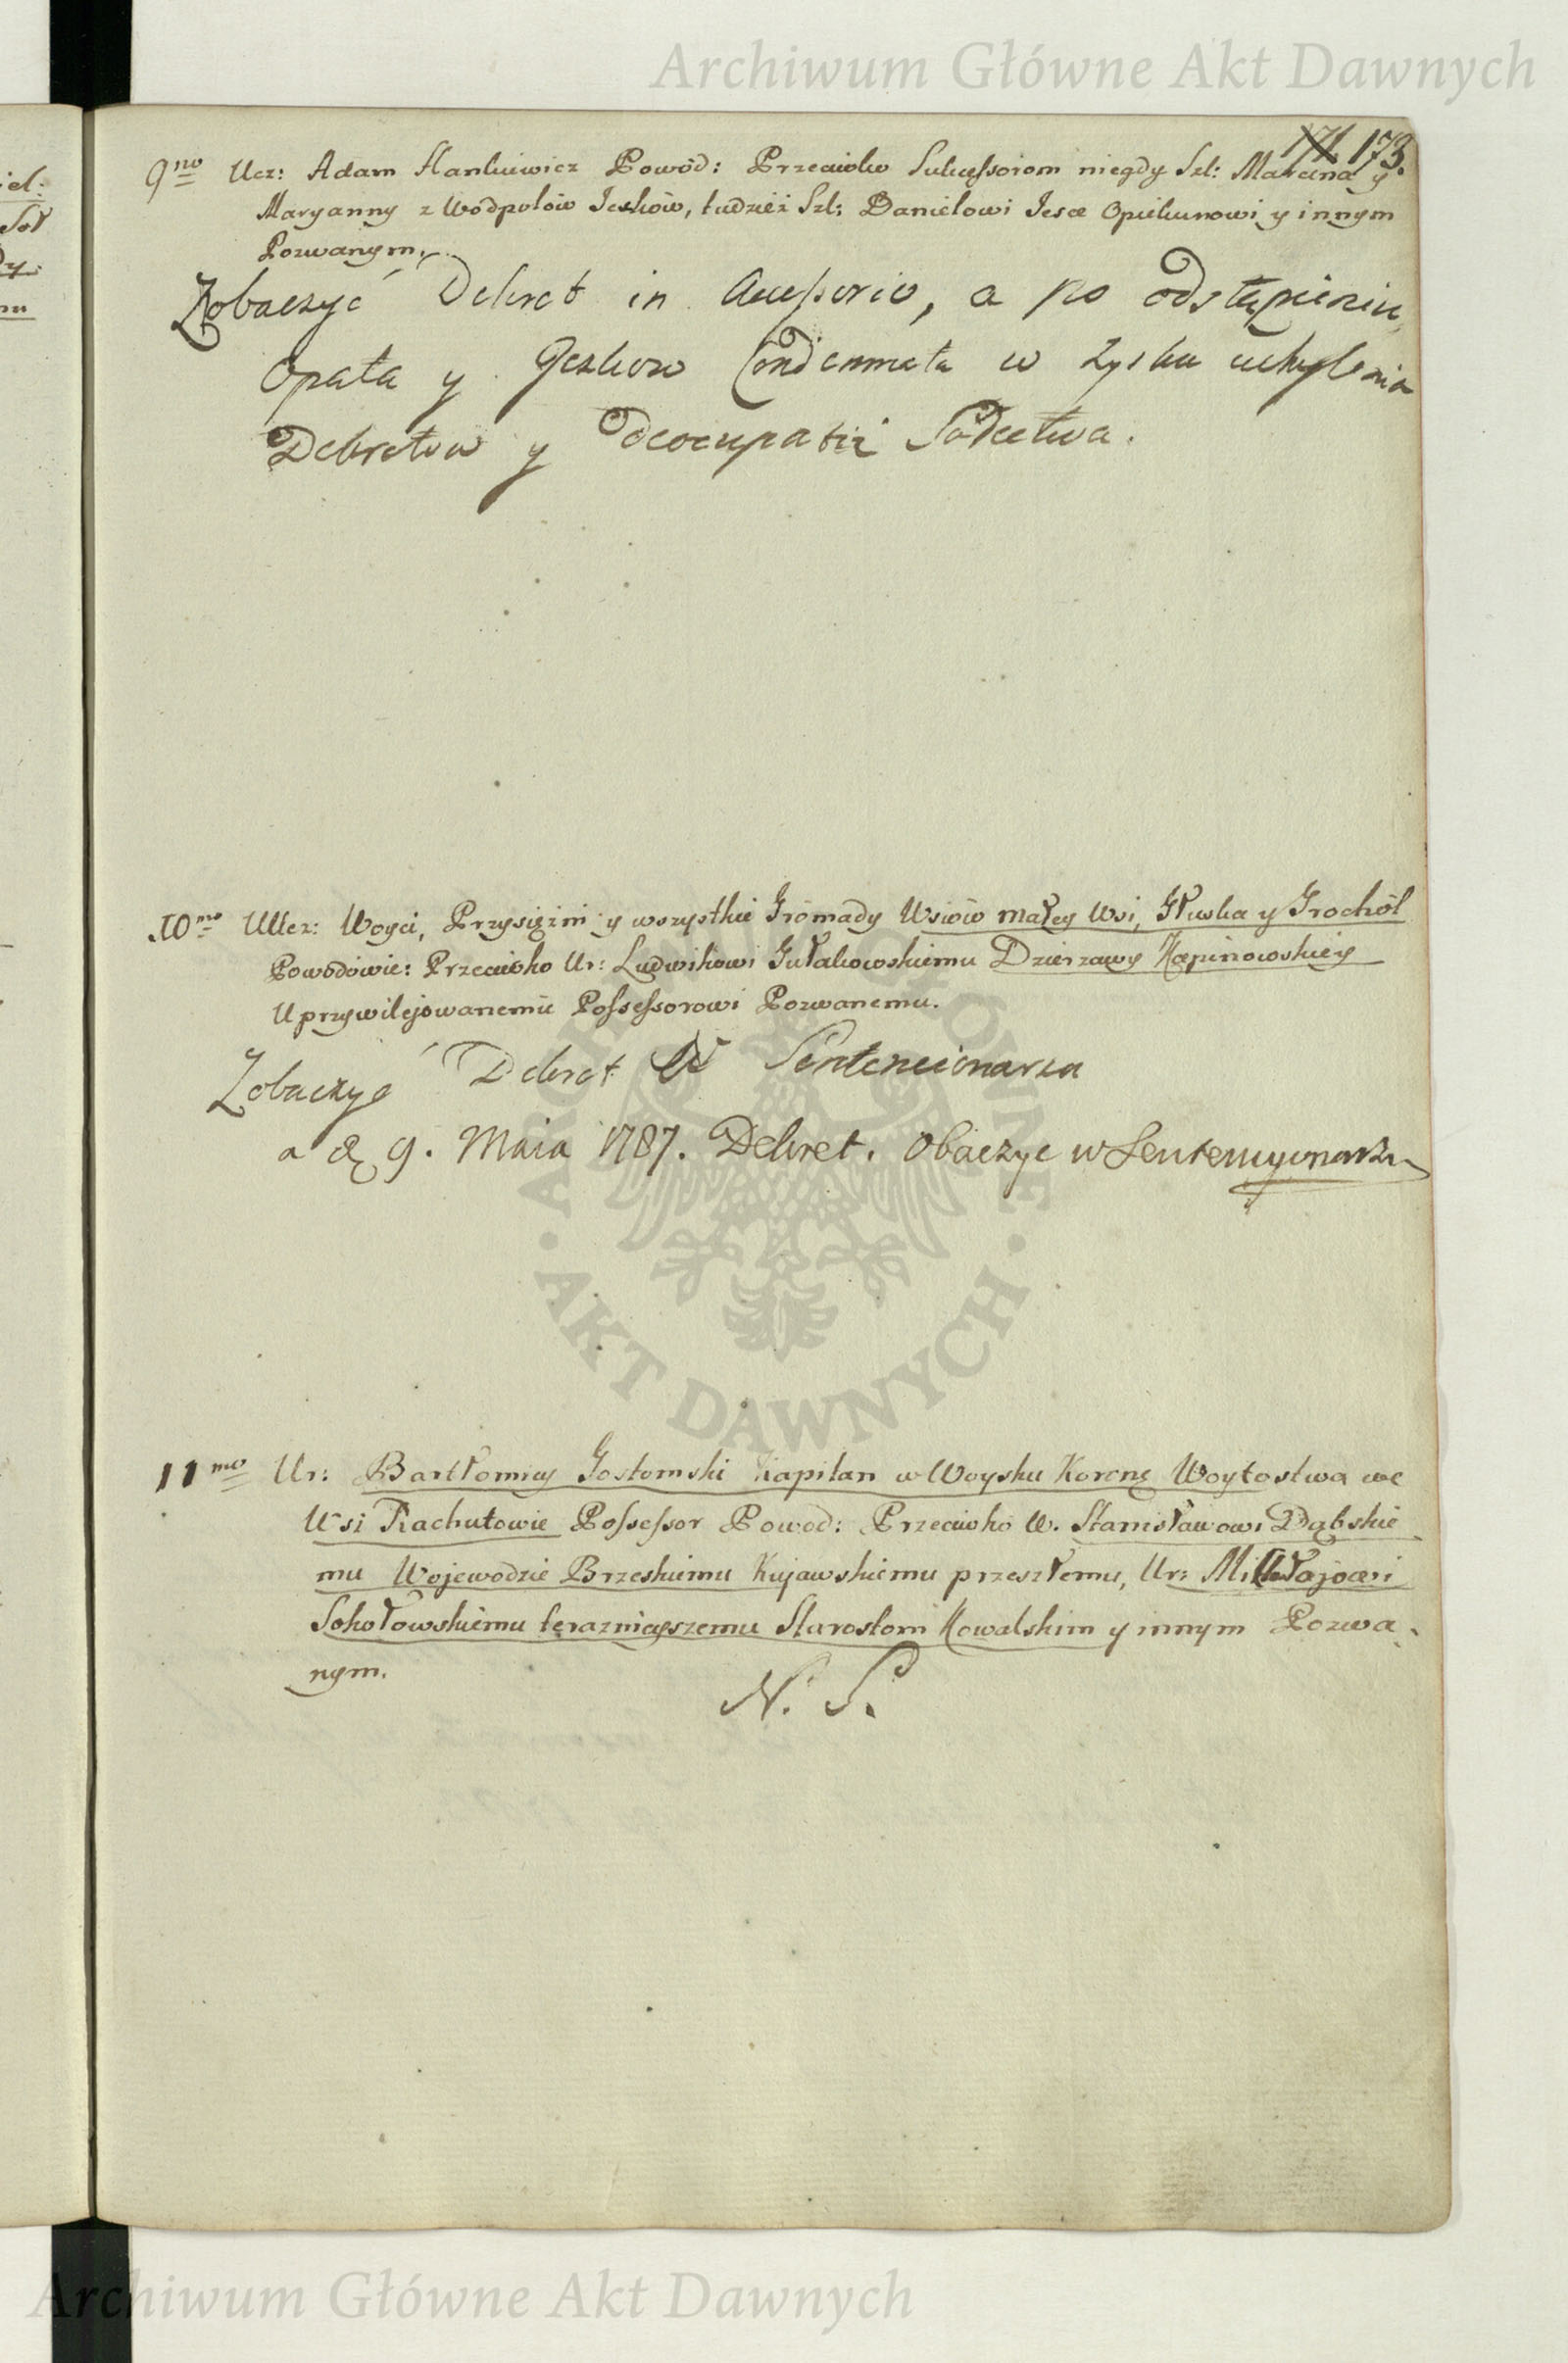 Archiwum Główne Akt Dawnych
171 173.
9no Ucz: Adam Stankiewicz Powód: Przeciwko Sukcessorom niegdy Szl: Marcina y
Maryanny z Wodpolów Jesków, tudzież Szl: Danielowi Jesce Opiekunowi y innym
Pozwanym.
Zobaczyć Dekret in Accessorio, a po odstąpieniu
Opata y Jeskow Condemnata w zysku uchylenia
Dekretow y deoccupatii Sołectwa.
10mo UUcz: Woyci, Przysiężni y wszystkie Gromady Wsiów Małey Wsi, Głuska y Grochól
Powodowie: Przeciwko Ur: Ludwikowi Gutakowskiemu Dzierzawy Kępinowskiey
Uprzywilejowanemu Possessorowi Pozwanemu.
Zobaczyć Dekret w Sentencionarza
a d. 9. Maia 1787. Dekret. Obaczyc w Sentencyonarzu
11mo Ur: Bartłomiey Gostomski Kapitan w Woysku Koronę Woytostwa we
Wsi Rachutowie Possessor Powod: Przeciwko W. Stanisławowi Dąbskie
mu Wojewodzie Brzeskiemu Kujawskiemu przeszłemu, Ur: Mikołajowi
Sokołowskiemu teraznieyszemu Starostom Kowalskim y innym Pozwa
nym.
N. S.
ARCHIWUM GŁÓWNE · AKT DAWNYCH ·
Archiwum Główne Akt Dawnych